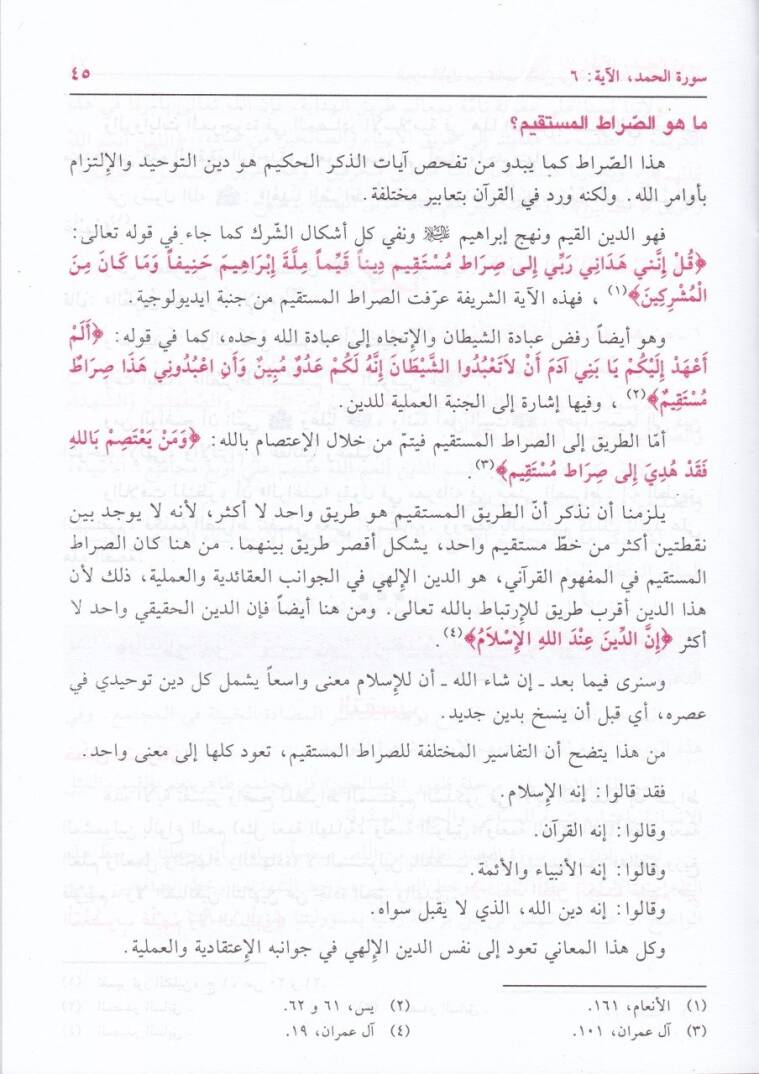 سورة الحمد، الآية: ٦
٤٥
ما هو الصّراط المستقيم؟
هذا الصّراط كما يبدو من تفحص آيات الذكر الحكيم هو دين التوحيد والإلتزام
بأوامر الله. ولكنه ورد في القرآن بتعابير مختلفة.
فهو الدين القيم ونهج إبراهيم ونفي كل أشكال الشّرك كما جاء في قوله تعالى:
﴿قُلْ إِنَّني هَدَانِي رَبِّي إِلى صِرَاط مُسْتَقِيم دِيناً قَيِّماً مِلَّةَ إِبْرَاهِيمَ حَنِيفاً وَمَا كَانَ مِنَ
الْمُشْرِكِينَ﴾(١) ، فهذه الآية الشريفة عرّفت الصراط المستقيم من جنبة ايديولوجية.
وهو أيضاً رفض عبادة الشيطان والإتجاه إلى عبادة الله وحده، كما في قوله: ﴿أَلَمْ
أَعْهَدْ إِلَيْكُمْ يَا بَنِي آدَمَ أَنْ لاَتَعْبُدُوا الشَّيْطَانَ إِنَّهُ لَكُمْ عَدُوٌ مُبِينٌ وَأَنِ اعْبُدُوني هَذَا صِرَاطٌ
مُسْتَقِيمٌ﴾(٢) ، وفيها إشارة إلى الجنبة العملية للدين.
أمّا الطريق إلى الصراط المستقيم فيتمّ من خلال الإعتصام بالله: ﴿وَمَنْ يَعْتَصِمْ بَاللهِ
فَقَدْ هُدِيَ إِلى صِرَاط مُسْتَقِيم﴾(٣).
يلزمنا أن نذكر أنّ الطريق المستقيم هو طريق واحد لا أكثر، لأنه لا يوجد بين
نقطتين أكثر من خطّ مستقيم واحد، يشكل أقصر طريق بينهما. من هنا كان الصراط
المستقيم في المفهوم القرآني، هو الدين الإلهي في الجوانب العقائدية والعملية، ذلك لأن
هذا الدين أقرب طريق للإرتباط بالله تعالى. ومن هنا أيضاً فإن الدين الحقيقي واحد لا
أكثر ﴿إِنَّ الدِّينَ عِنْدَ اللهِ الإِسْلاَمُ﴾(٤).
وسنرى فيما بعد ـ إن شاء الله ـ أن للإسلام معنى واسعاً يشمل كل دين توحيدي في
عصره، أي قبل أن ينسخ بدين جديد.
من هذا يتضح أن التفاسير المختلفة للصراط المستقيم، تعود كلها إلى معنى واحد.
فقد قالوا: إنه الإسلام.
وقالوا: إنه القرآن.
وقالوا: إنه الأنبياء والأئمة.
وقالوا: إنه دين الله، الذي لا يقبل سواه.
وكل هذا المعاني تعود إلى نفس الدين الإلهي في جوانبه الإعتقادية والعملية.
(١) الأنعام، ١٦١. (٢) يس، ٦١ و ٦٢.
(٣) آل عمران، ١٠١. (٤) آل عمران، ١٩.